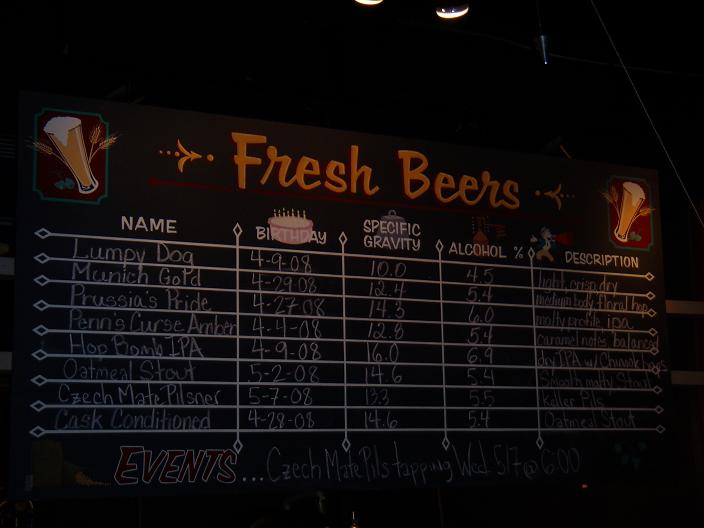 Fresh Beers
NAME BIRTHDAY SPECIFIC GRAVITY ALCOHOL % DESCRIPTION
Lumpy Dog 4-9-08 10.0 4.5 light, crisp, dry
Munich Gold 4-29-08 12.4 5.4 medium body floral hop
Prussia's Pride 4-27-08 14.3 6.0 malty profile ipa
Penn's Curse Amber 4-4-08 12.8 5.4 caramel notes balanced
Hop Bomb IPA 4-9-08 16.0 6.9 dry IPA w/ Chinook hops
Oatmeal Stout 5-2-08 14.6 5.4 Smooth malty Stout
Czech Mate Pilsner 5-7-08 13.3 5.5 Keller Pils
Cask Conditioned 4-28-08 14.6 5.4 Oatmeal Stout
EVENTS... Czech Mate Pils tapping Wed. 5/7 @ 6:00